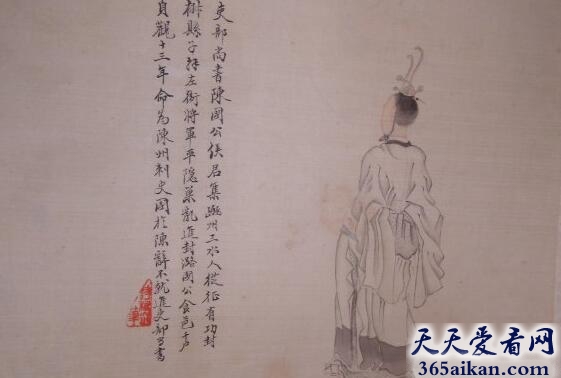 吏部尚書陳國公侯君集豳州三水人從征有功封
縣子拜左衛將軍平隱巢亂進封潞國公食邑千戶
貞觀十三年命為陳州刺史國於陳辭不就進吏部尚書
天天爱看网
365aikan.com